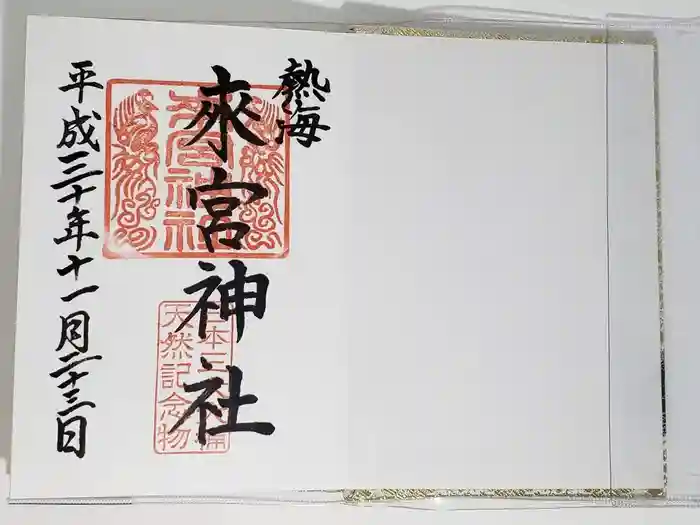 熱海
來宮神社
來宮神社
天然記念物
平成三十年十一月二十三日